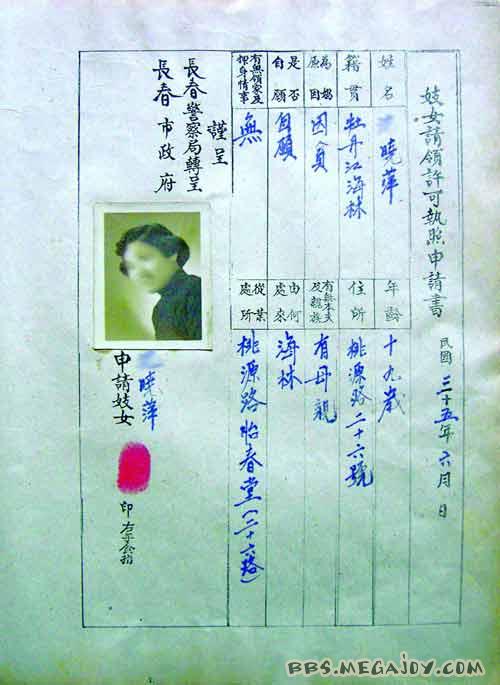 妓女請領許可執照申請書
民國三十五年六月 日
姓名
曉萍
年齡
十九歲
籍貫
牡丹江海林
住所
桃源路二十六號
為娼原因
因貧
有無本夫及親族
有母親
是否自願
自願
由何處來
海林
有無領家及押身情事
無
從業處所
桃源路怡春堂(二十六號)
謹呈
長春警察局轉呈
長春市政府
曉萍
申請妓女
印
右手食指
BBS.MEGAJOY.COM